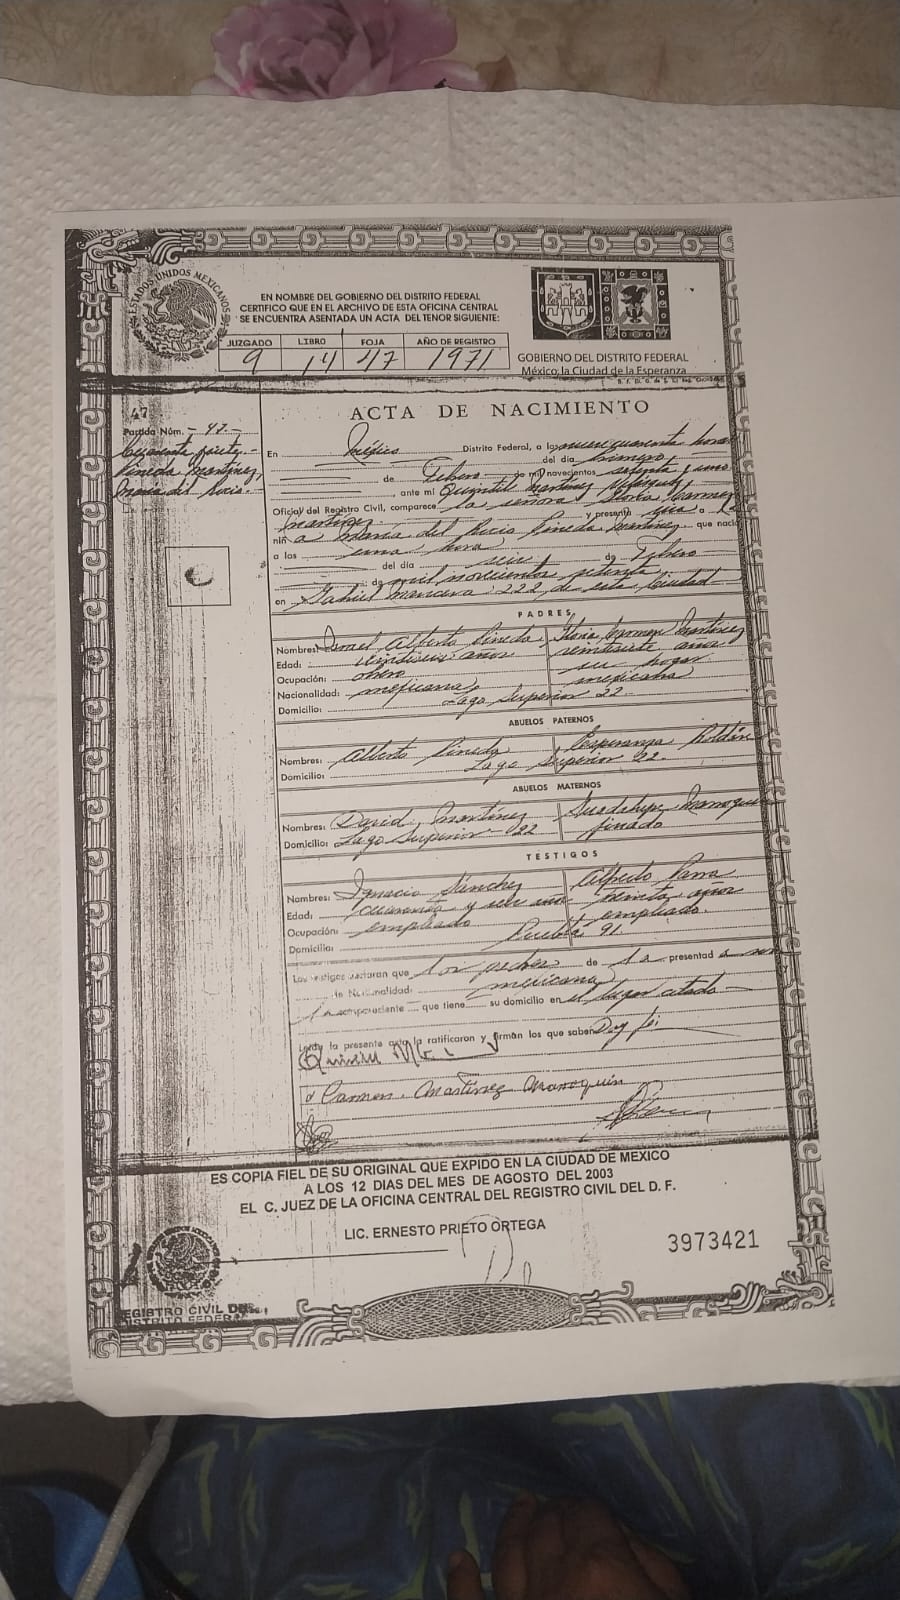 ESTADOS UNIDOS MEXICANOS
EN NOMBRE DEL GOBIERNO DEL DISTRITO FEDERAL
CERTIFICO QUE EN EL ARCHIVO DE ESTA OFICINA CENTRAL
SE ENCUENTRA ASENTADA UN ACTA DEL TENOR SIGUIENTE:
JUZGADO LIBRO FOJA AÑO DE REGISTRO
9 14 47 1971
GOBIERNO DEL DISTRITO FEDERAL
México, la Ciudad de la Esperanza
47
ACTA DE NACIMIENTO
Partida Núm. - 47.-
Pineda Martínez,
María del Rocío.
En México Distrito Federal, a las nueve cuarenta horas
del día primero
de Febrero de mil novecientos setenta y uno
, ante mi Quintil Martínez Velázquez,
Oficial del Registro Civil, comparece la señora Gloria Carmen
Martínez y presenta viva a la
niña María del Rocío Pineda Martínez que nació
a las una hora
del día seis de Febrero
de mil novecientos setenta
en Gabriel Mancera 222 de esta Ciudad
PADRES
Nombres: Ismael Alberto Pineda Gloria Carmen Martínez
Edad: veintiseis años veintisiete años
Ocupación: obrero su hogar
Nacionalidad: mexicana mexicana
Domicilio: Lago Superior 22.
ABUELOS PATERNOS
Nombres: Alberto Pineda Esperanza Roldán
Domicilio: Lago Superior 22.
ABUELOS MATERNOS
Nombres: David Martínez Guadalupe Marroquín
Domicilio: Lago Superior 22 finado
TESTIGOS
Nombres: Ignacio Sánchez Alfredo Parra
Edad: cuarenta y años treinta años
Ocupación: empleado empleado.
Domicilio: Puebla 91.
Los testigos declaran que los padres de la presentada son
de Nacionalidad: mexicana
la compareciente que tiene su domicilio en el lugar citado
Leída la presente acta la ratificaron y firman los que saben Doy fe
Carmen Martinez Marroquin
ES COPIA FIEL DE SU ORIGINAL QUE EXPIDO EN LA CIUDAD DE MEXICO
A LOS 12 DIAS DEL MES DE AGOSTO DEL 2003
EL C. JUEZ DE LA OFICINA CENTRAL DEL REGISTRO CIVIL DEL D. F.
LIC. ERNESTO PRIETO ORTEGA
3973421
REGISTRO CIVIL DEL
DISTRITO FEDERAL